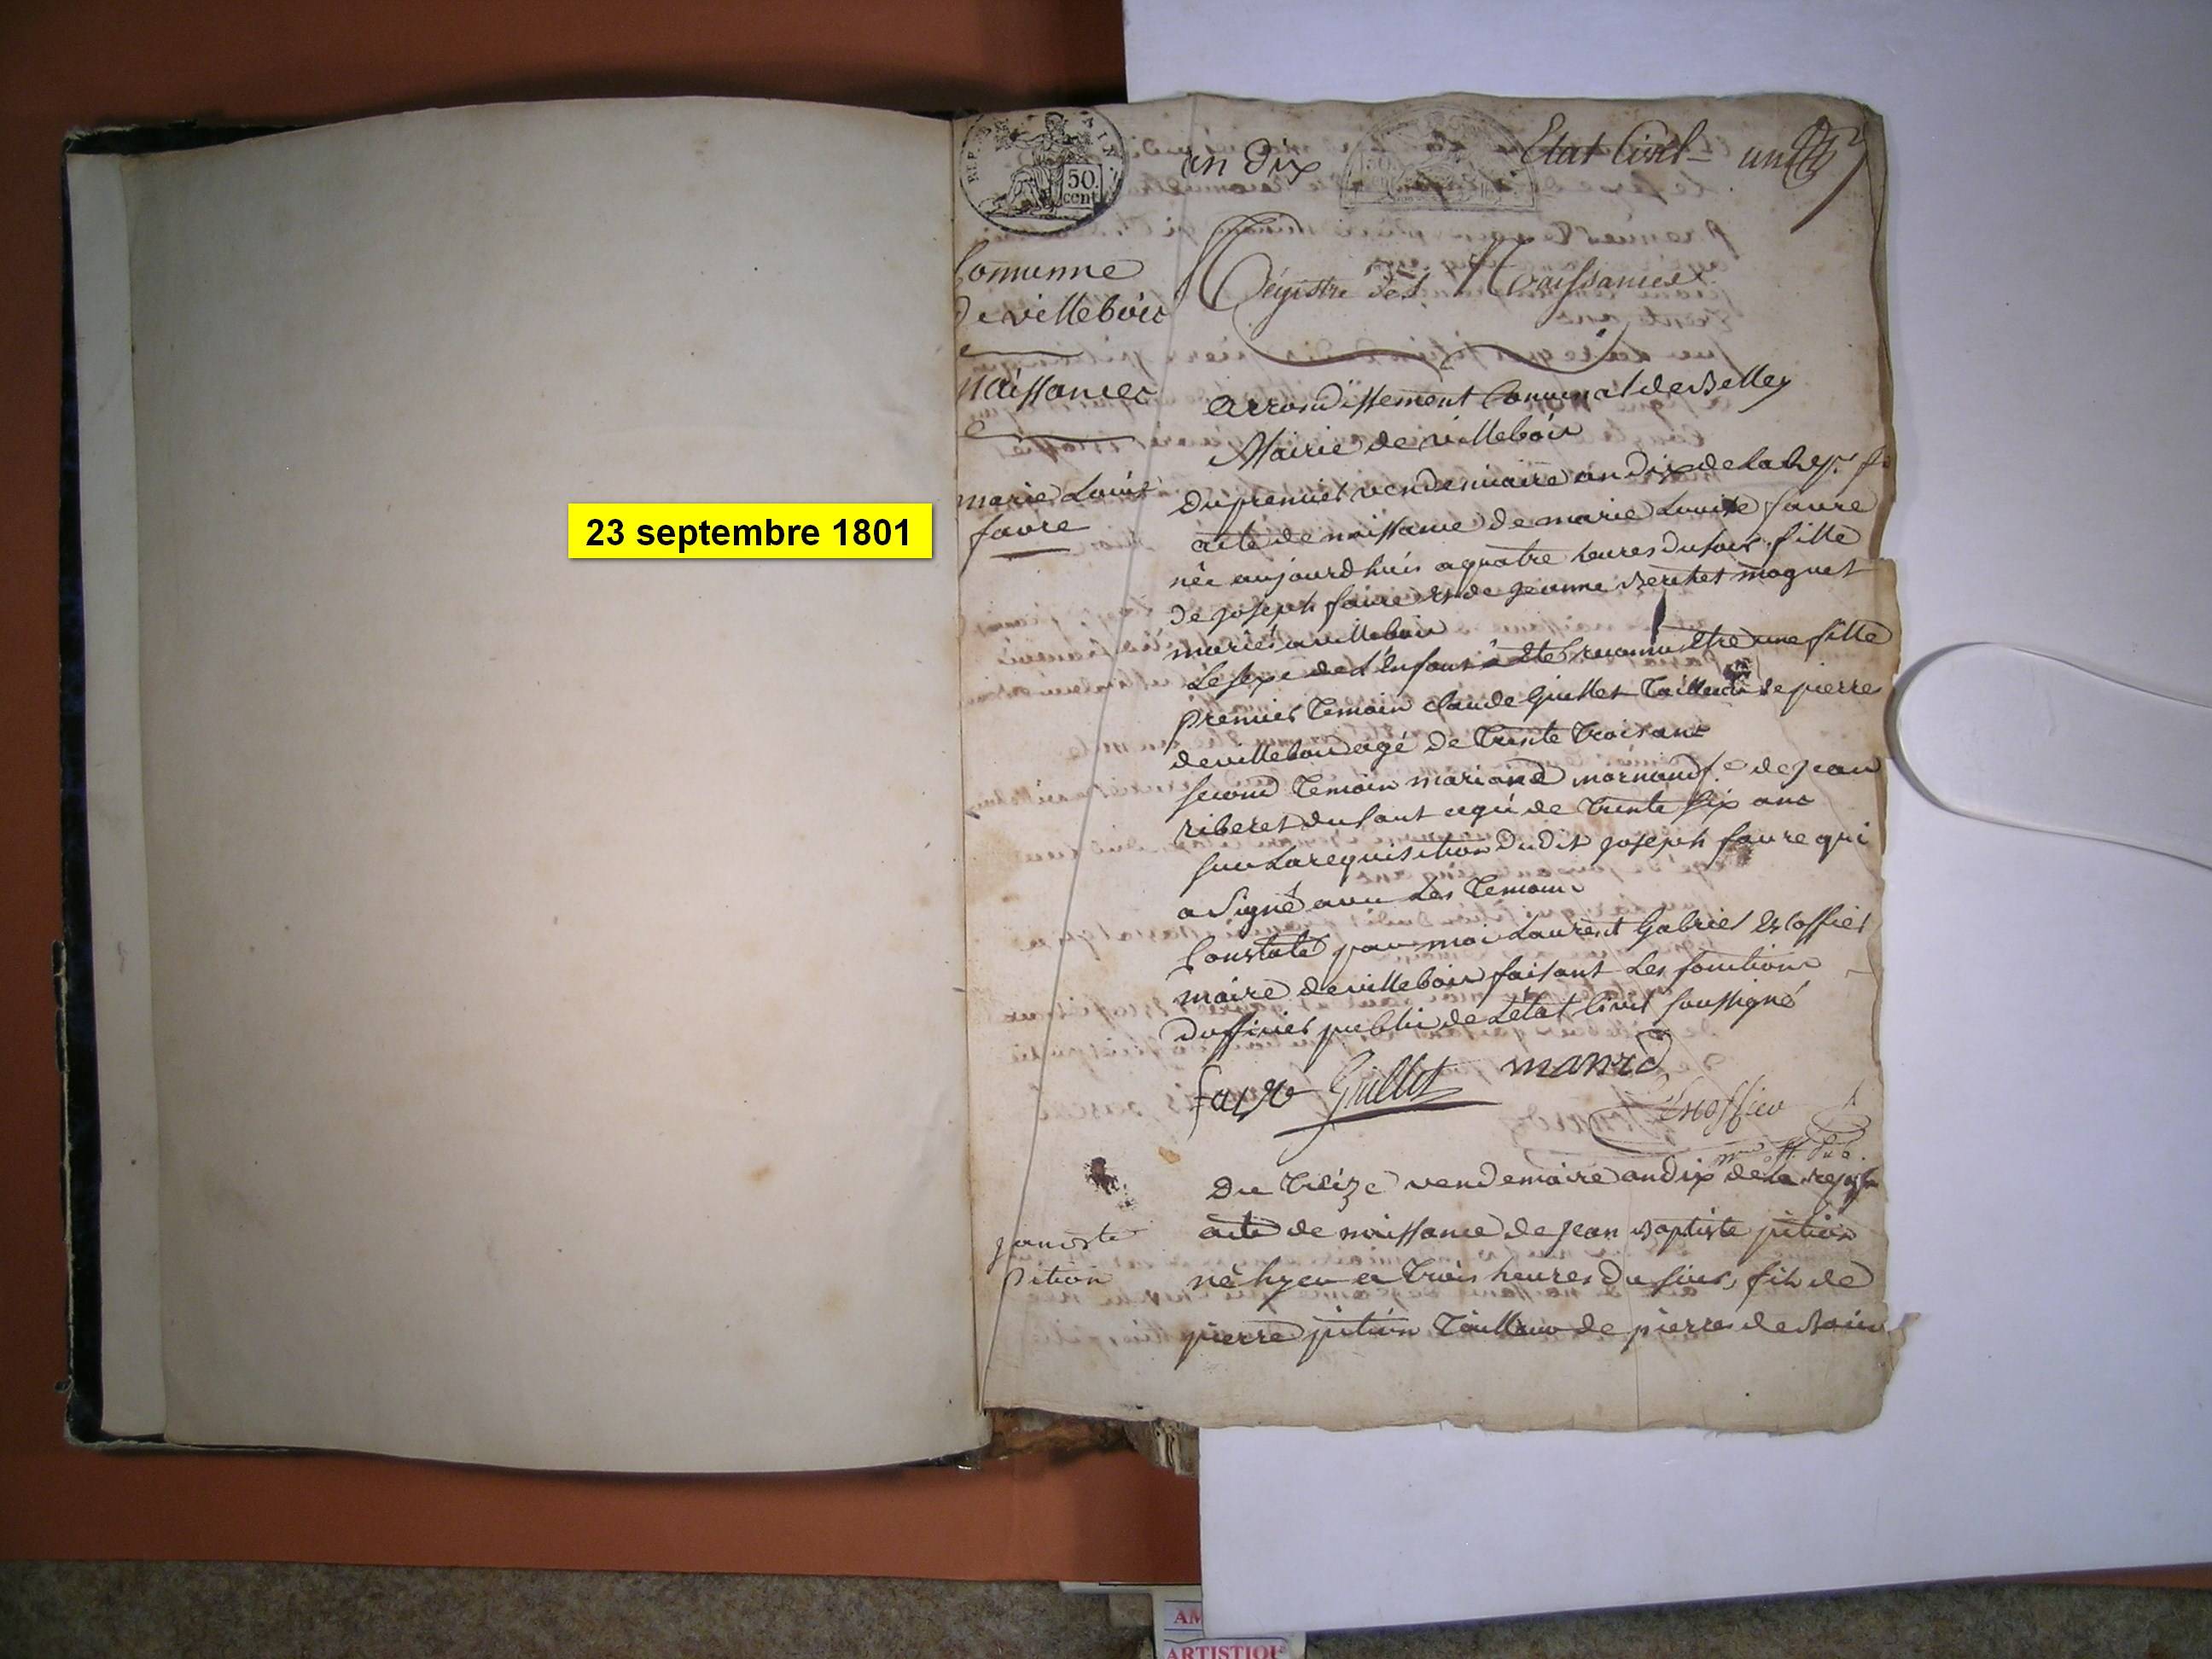 50
cent
an Dix
Etat Civil
un
Commune
de villebois
Régistre des Naissances
naissances
Arrondissement Communal de Belley
Mairie de villebois
marie Louise
favre
23 septembre 1801
Du premier vendemiaire an dix de la rep. f
acte de naissance de marie Louise favre
née aujourdhuis a quatre heures du soir fille
de joseph favre et de jeanne Berthet moguet
mariés a villebois
Le sexe de L'enfant à Eté reconnu Etre une fille
premier Temoin claude Guillet Tailleur de pierres
de villebois agé de Trente Trois ans
second Temoin mariane mornand f.e de jean
riberet du Saut agé de Trente six ans
sur La requisition Dudit joseph favre qui
a Signé avec Les Temoins
Constaté par moi Laurent Gabriel Escoffier
maire de villebois faisant Les fonctions
dofficier public de Létat Civil soussigné
favre Guillet
Escoffier
off. Pub.
Du Treize vendemaire an dix de la
acte de naissance de jean Baptiste pition
jan bte
pition
né hyer a Trois heures du soir, fils de
pierre pition Tailleur de pierres de
AM
ARTISTIQU